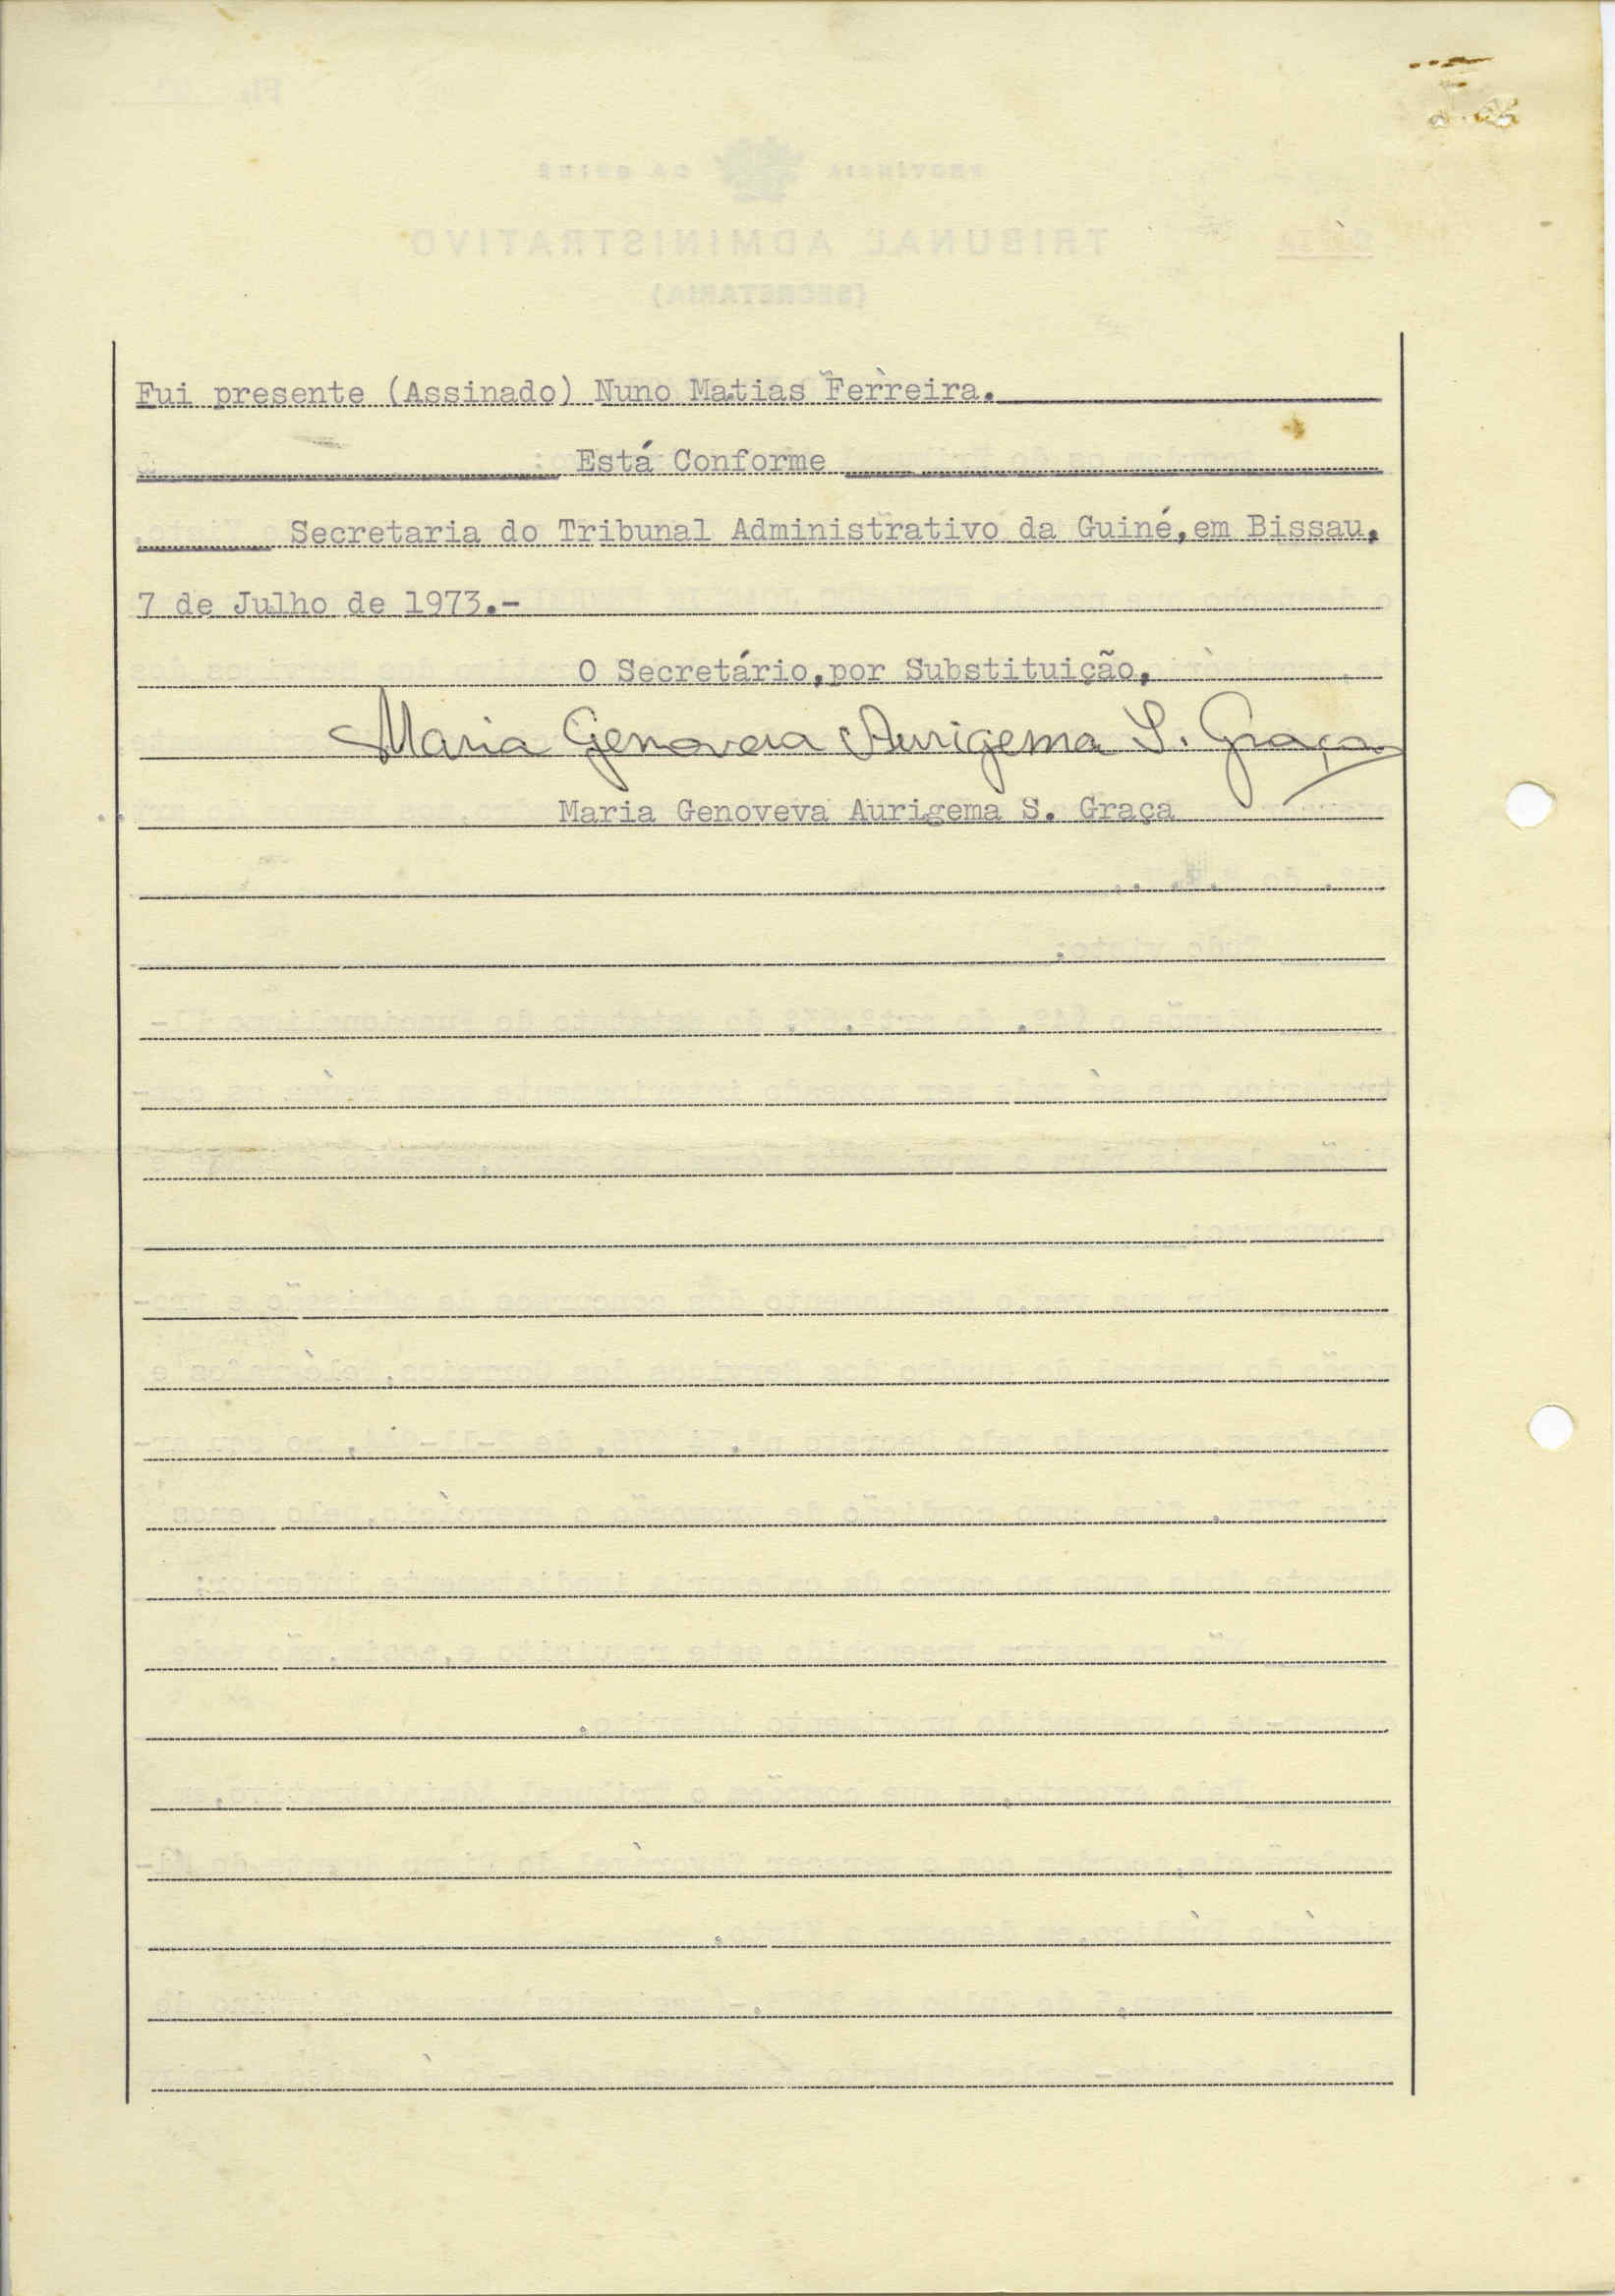 Fui presente (Assinado) Nuno Matias Ferreira.
Está Conforme
Secretaria do Tribunal Administrativo da Guiné,em Bissau,
7 de Julho de 1973.-
O Secretário,por Substituição,
Maria Genoveva Aurigema S. Graça
Maria Genoveva Aurigema S. Graça